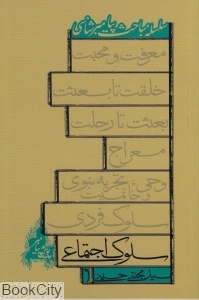 سلسله مباحث پیامبرشناسی
معرفت و محبت
خلقت تا بعثت
بعثت تا رحلت
معراج
وحی، تجربه نبوی
و خاتمیت
سلوک فردی
سلوک اجتماعی
BookCity